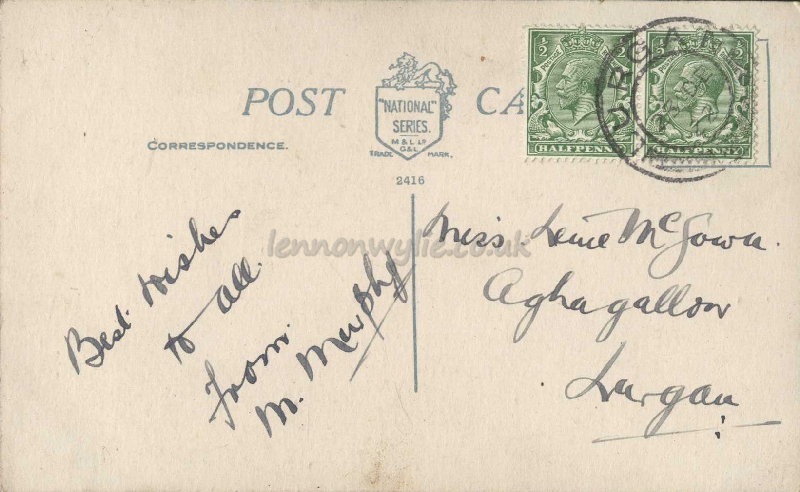 POST CA
"NATIONAL"
SERIES.
M & L Ld
G & L
TRADE MARK.
CORRESPONDENCE.
2416
1/2 1/2
HALFPENNY
1/2 1/2
HALFPENNY
LURGAN
lennonwylie.co.uk
Best Wishes
to all.
From
M. Murphy
Miss McGown.
Aghagallon
Lurgan